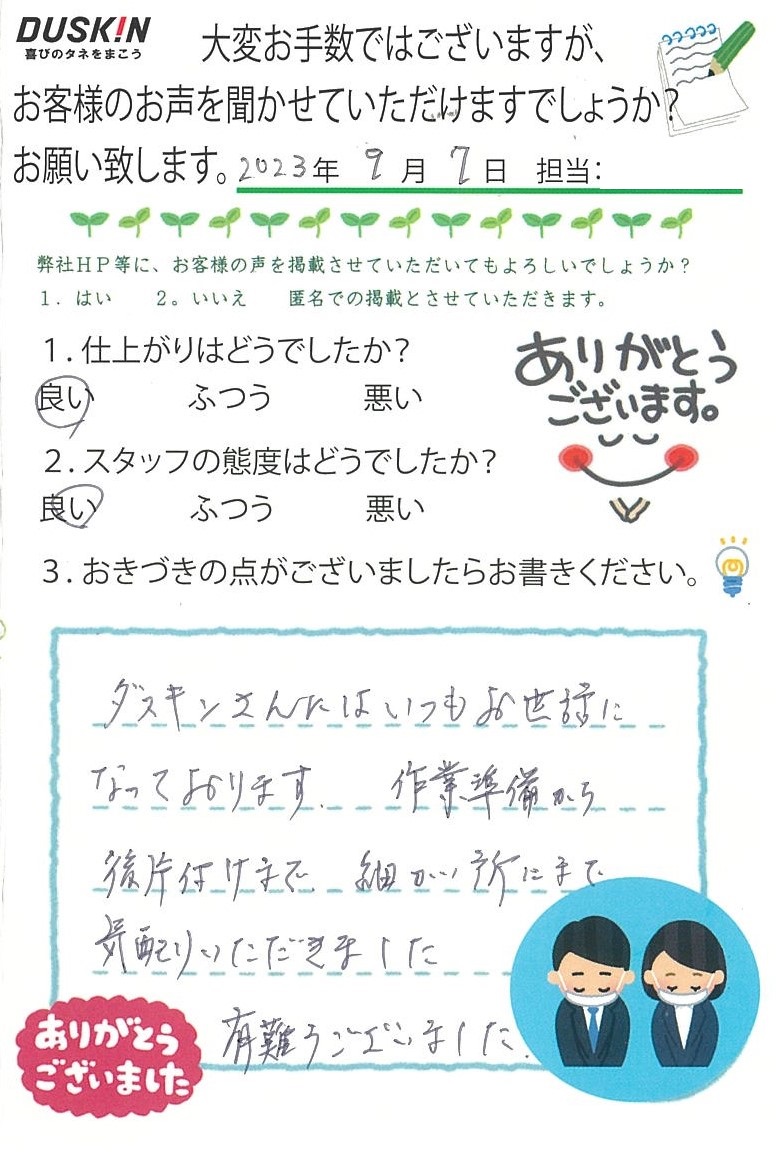 DUSK!N
喜びのタネをまこう
大変お手数ではございますが、
お客様のお声を聞かせていただけますでしょうか?
お願い致します。2023年 9月 7日 担当:
弊社HP等に、お客様の声を掲載させていただいてもよろしいでしょうか?
1. はい 2。いいえ 匿名での掲載とさせていただきます。
1.仕上がりはどうでしたか?
良い ふつう 悪い
ありがとう
ございます。
2.スタッフの態度はどうでしたか?
良い ふつう 悪い
3.おきづきの点がございましたらお書きください。
ダスキンさんにはいつもお世話に
なっております。 作業準備から
後片付けまで、細かい所にまで
気配りいただきました
有難うございました。
ありがとう
ございました